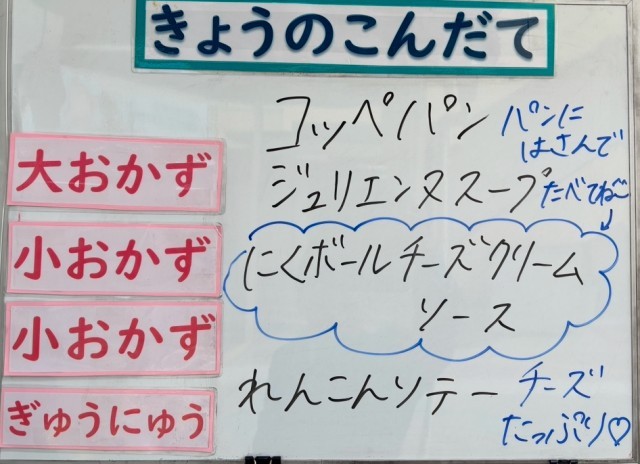 きょうのこんだて
コッペパン
パンに
はさんで
たべてね〜
大おかず
ジュリエンヌスープ
小おかず
にくボールチーズクリーム
ソース
小おかず
れんこんソテー
チーズ
たっぷり♡
ぎゅうにゅう